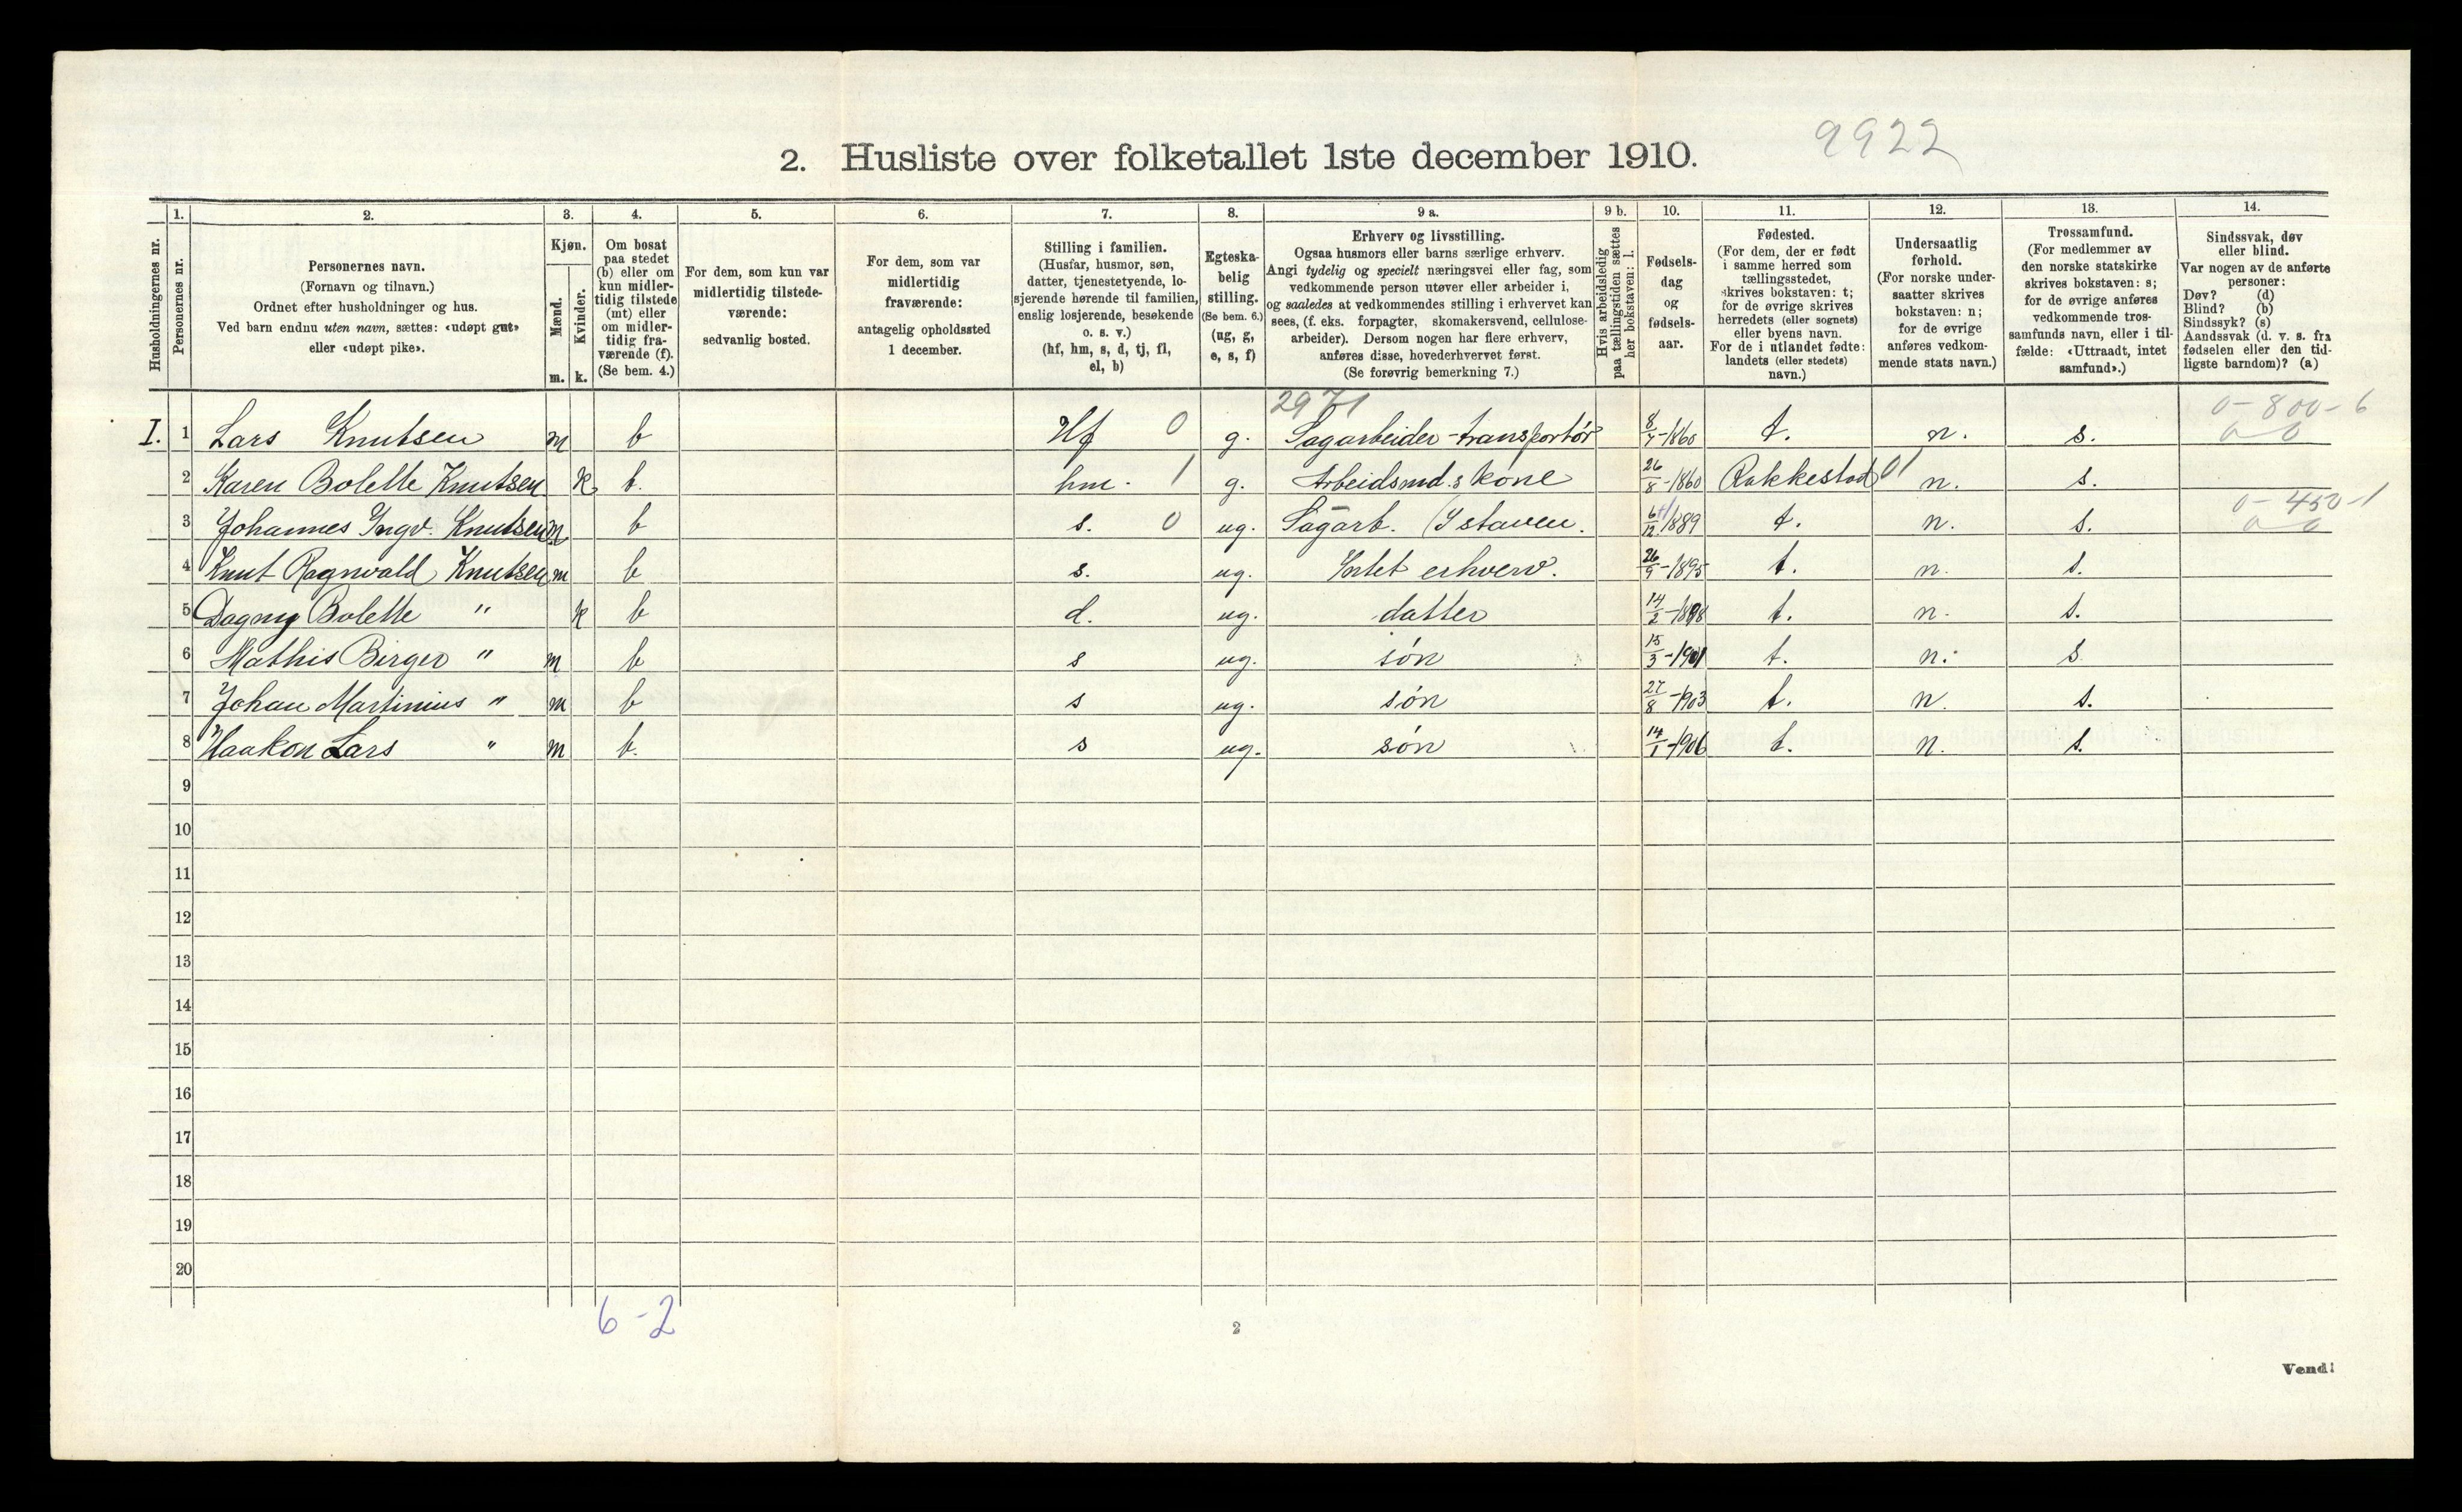 2. Husliste over folketallet 1ste december 1910.
9922
Husholdningernes nr.
1.
Personernes nr.
2.
Personernes navn.
(Fornavn og tilnavn.)
Ordnet efter husholdninger og hus.
Ved barn endnu uten navn, sættes: «udøpt gut»
eller «udøpt pike».
3.
Kjøn.
Mænd.
Kvinder.
m. k.
4.
Om bosat
paa stedet
(b) eller om
kun midler-
tidig tilstede
(mt) eller
om midler-
tidig fra-
værende (f).
(Se bem. 4.)
5.
For dem, som kun var
midlertidig tilstede-
værende:
sedvanlig bosted.
6.
For dem, som var
midlertidig
fraværende:
antagelig opholdssted
1 december.
7.
Stilling i familien.
(Husfar, husmor, søn,
datter, tjenestetyende, lo-
sjerende hørende til familien,
enslig losjerende, besøkende
o. s. v.)
(hf, hm, s, d, tj, fl,
el, b)
8.
Egteska-
belig
stilling.
(Se bem. 6.)
(ug, g,
e, s, f)
9 a.
Erhverv og livsstilling.
Ogsaa husmors eller barns særlige erhverv.
Angi tydelig og specielt næringsvei eller fag, som
vedkommende person utøver eller arbeider i,
og saaledes at vedkommendes stilling i erhvervet kan
sees, (f. eks. forpagter, skomakersvend, cellulose-
arbeider). Dersom nogen har flere erhverv,
anføres disse, hovederhvervet først.
(Se forøvrig bemerkning 7.)
9 b.
Hvis arbeidsledig
paa tællingstiden sættes
her bokstaven: l.
10.
Fødsels-
dag
og
fødsels-
aar.
11.
Fødested.
(For dem, der er født
i samme herred som
tællingsstedet,
skrives bokstaven: t;
for de øvrige skrives
herredets (eller sognets)
eller byens navn.
For de i utlandet fødte:
landets (eller stedets)
navn.)
12.
Undersaatlig
forhold.
(For norske under-
saatter skrives
bokstaven: n;
for de øvrige
anføres vedkom-
mende stats navn.)
13.
Trossamfund.
(For medlemmer av
den norske statskirke
skrives bokstaven: s;
for de øvrige anføres
vedkommende tros-
samfunds navn, eller i til-
fælde: «Uttraadt, intet
samfund».)
14.
Sindssvak, døv
eller blind.
Var nogen av de anførte
personer:
Døv? (d)
Blind? (b)
Sindssyk? (s)
Aandssvak (d. v. s. fra
fødselen eller den tid-
ligste barndom)? (a)
2971 0-800-6
I. 1 Lars Knutsen m b Hf 0 g. Sagarbeider-transportör 8/7-1860 t. n. s. 0 0
2 Karen Bolette Knutsen k b. hm. 1 g. Arbeidsmd.s kone 26/8-1860 Rakkestad 01 n. s.
0-450-1
3 Johannes Ingv. Knutsen m b s. 0 ug. Sagarb. (I staven. 6/12 1889 t. n. s. 0 0
4 Knut Ragnvald Knutsen m b s. ug. Intet erhverv. 26/9-1895 t. n. s.
5 Dagny Bolette " k b d. ug. datter 14/2-1898 t. n. s.
6 Mathis Birger " m b s ug. søn 15/3-1901 t. n. s
7 Johan Martinius " m b s ug. søn 27/8-1903 t. n. s.
8 Haakon Lars " m b. s ug. søn 14/1-1906 t. n. s.
9
10
11
12
13
14
15
16
17
18
19
20
6-2
2
Vend!